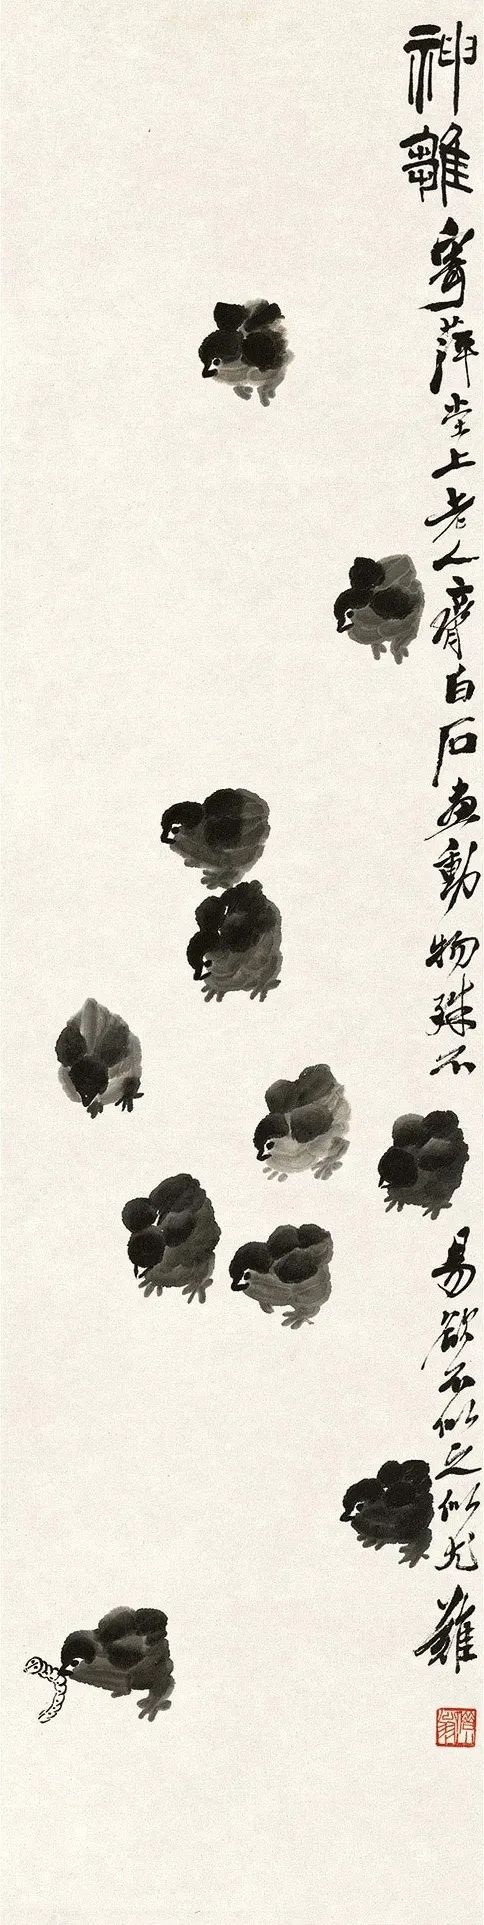 神 寄萍堂上老人齊白石畫動物殊不易欲不似之似尤難